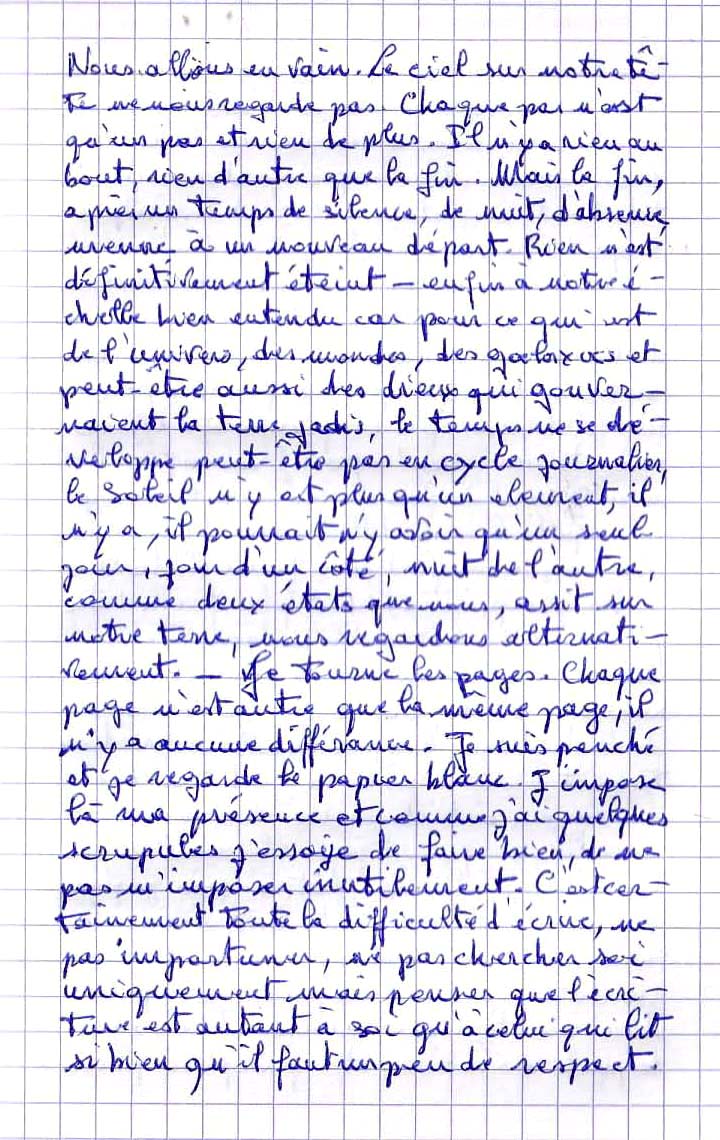 Nous allons en vain. Le ciel sur notre tê-
te ne nous regarde pas. Chaque pas n'est
qu'un pas et rien de plus. Il n'y a rien au
bout, rien d'autre que la fin. Mais la fin,
après un temps de silence, de nuit, d'absence
mène à un nouveau départ. Rien n'est
définitivement éteint – enfin à notre é-
chelle bien entendu car pour ce qui est
de l'univers, des mondes, des galaxies et
peut-être aussi des dieux qui gouver-
naient la terre jadis, le temps ne se dé-
veloppe peut-être pas en cycle journalier,
le soleil n'y est plus qu'un élément, il
n'y a, il pourrait n'y avoir qu'un seul
jour, jour d'un côté, nuit de l'autre,
comme deux états que nous, assit sur
notre terre, nous regardons alternati-
vement. – Je tourne les pages. Chaque
page n'est autre que la même page, il
n'y a aucune différance. Je suis penché
et je regarde le papier blanc. J'impose
là ma présence et comme j'ai quelques
scrupules j'essaye de faire bien, de ne
pas m'imposer inutilement. C'est cer-
tainement toute la difficulté d'écrire, ne
pas importuner, ne pas chercher soi
uniquement mais penser que l'écri-
ture est autant à soi qu'à celui qui lit
si bien qu'il faut un peu de respect.